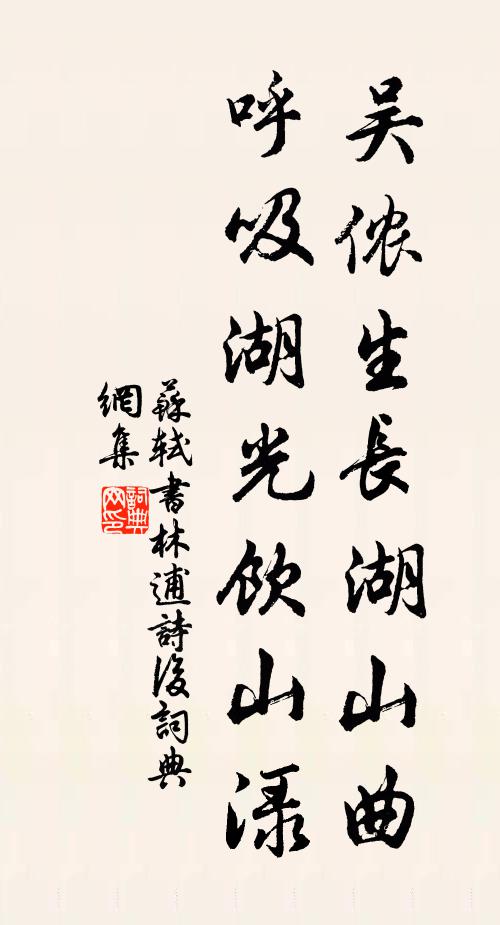 吴侬生長湖山曲
呼吸湖光飲山渌
蘇軾書林逋詩後詞典
網集
詞典
网印